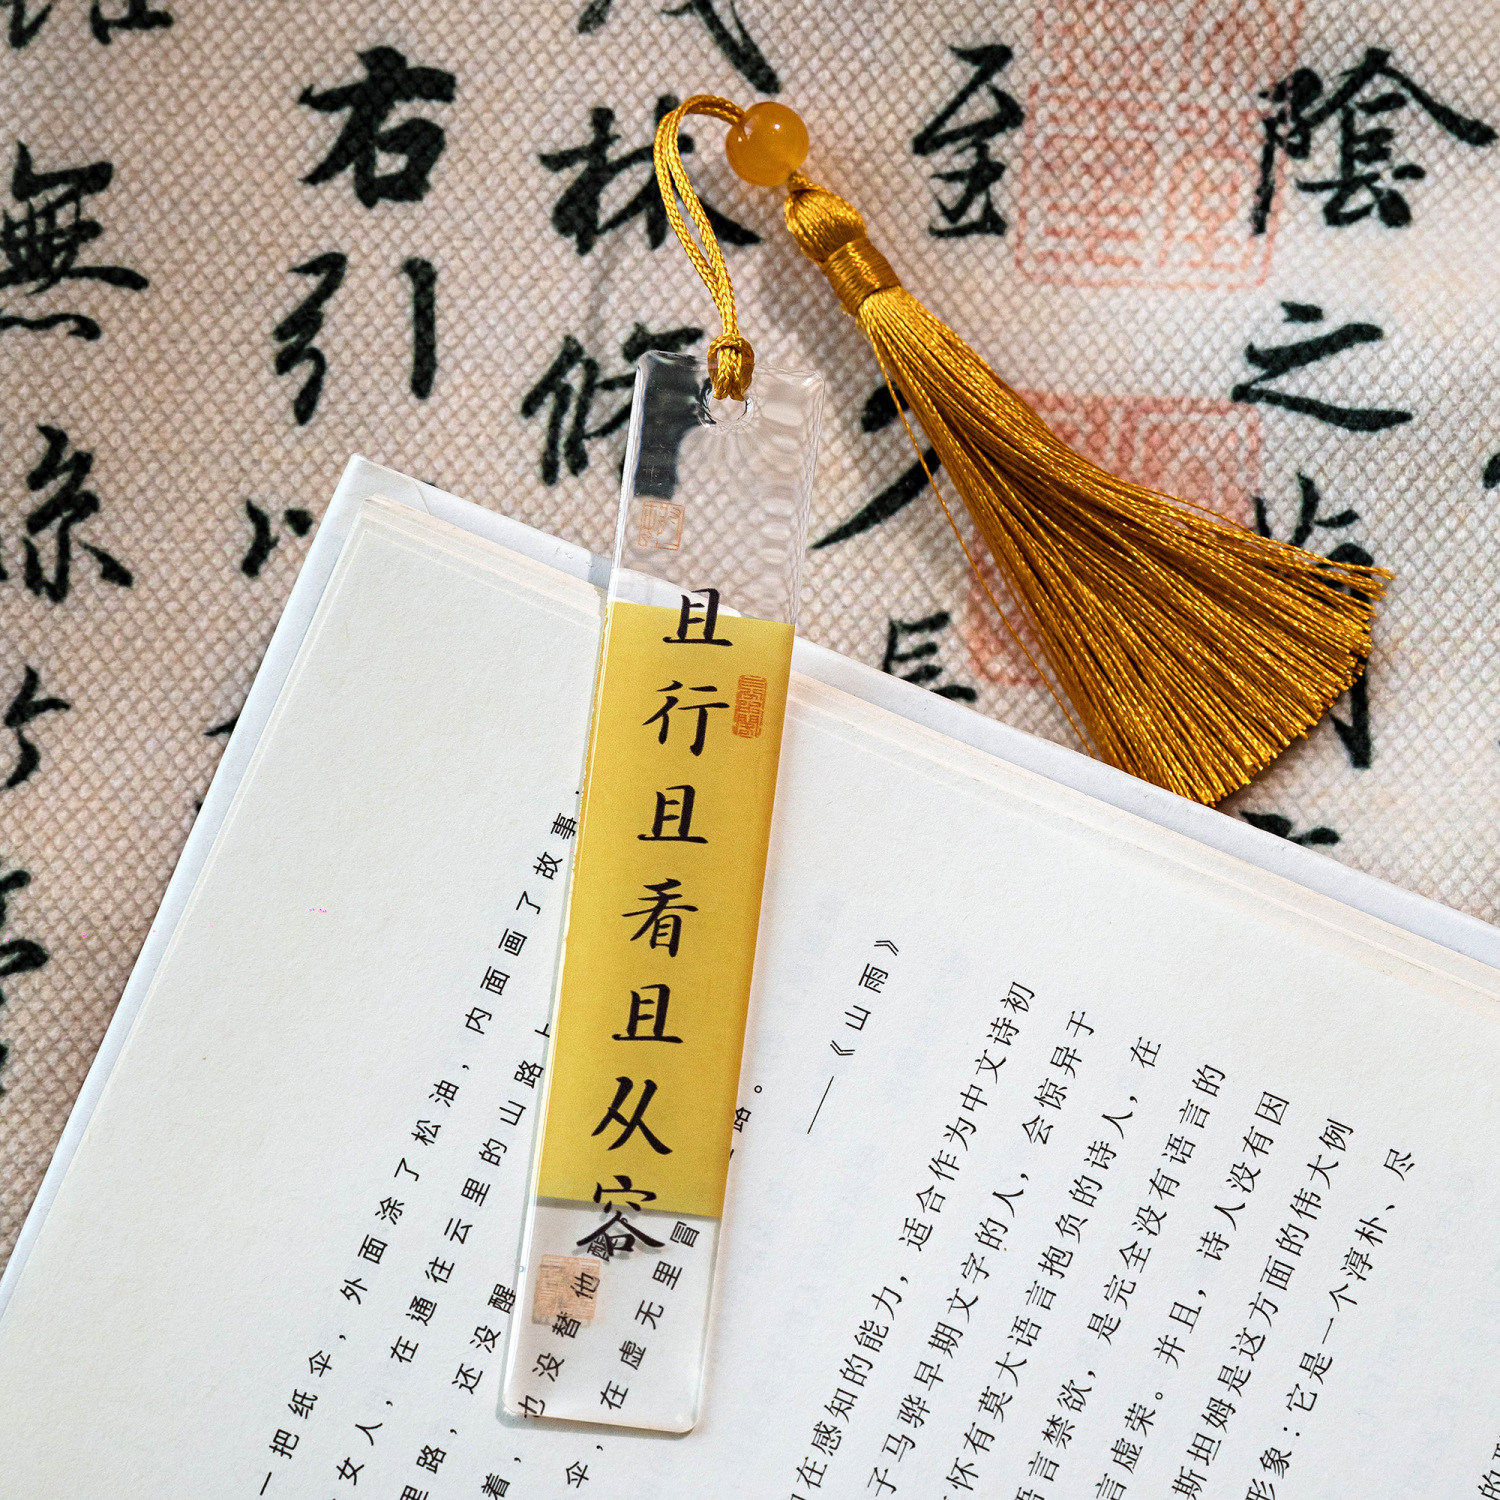 陰之
至少長
林脩
右引以
無亦
且行且看且从容
一把纸伞，外面涂了松油，内面画了故事
女人，在通往云里的山路上
里路，还没醒
着，也没替他醒
伞，在虚无里冒
路。
——《山雨》
在感知的能力，适合作为中文诗初
子马骅早期文字的人，会惊异于
怀有莫大语言抱负的诗人，在
语言禁欲，是完全没有语言的
言虚荣。并且，诗人没有因
斯坦姆是这方面的伟大例
形象：它是一个淳朴、尽
的